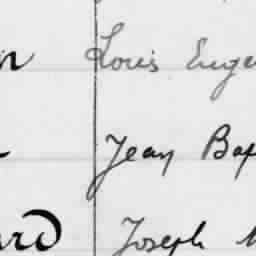 Louis Euge
Jean Bap
ard Joseph